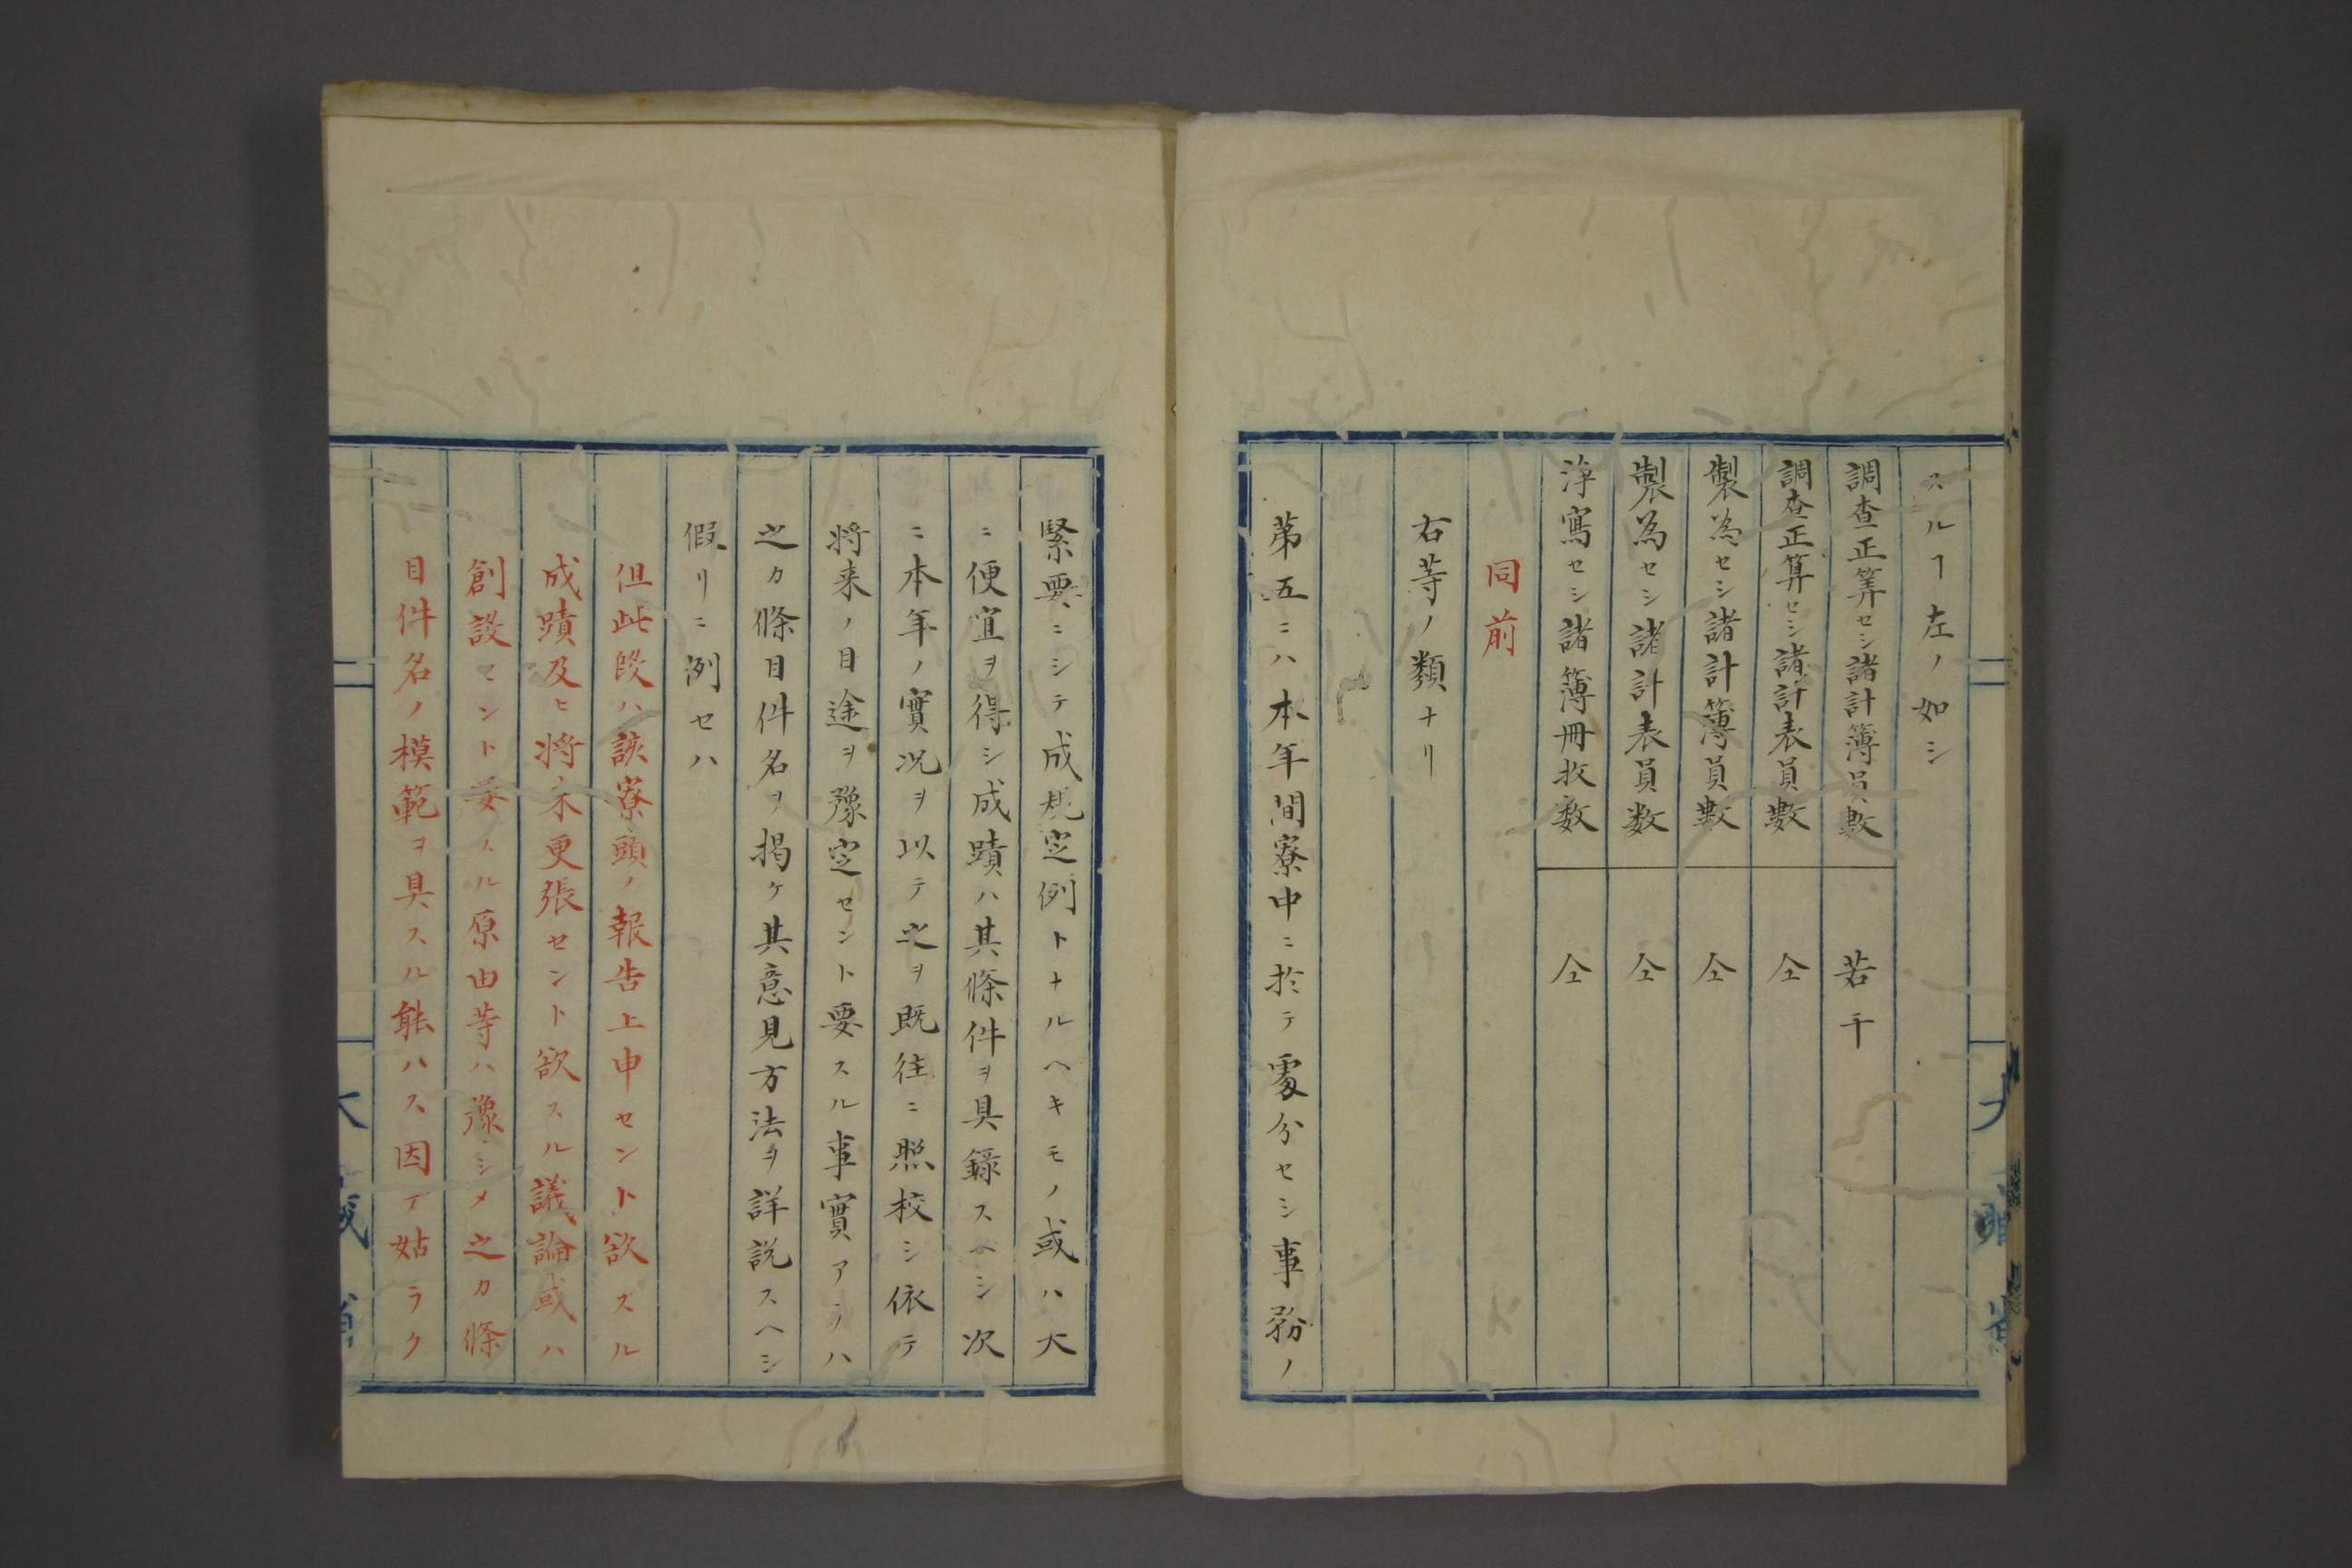 スルヿ左ノ如シ
調查正算セシ諸計簿員數 若干
調查正算セシ諸計表員數 仝
製為セシ諸計簿員數 仝
製為セシ諸計表員数 仝
淨寫セシ諸簿冊枚数 仝
同前
右等ノ類ナリ
第五ニハ本年間寮中ニ於テ處分セシ事務ノ
緊要ニシテ成規定例トナルヘキモノ或ハ大
ニ便宜ヲ得シ成蹟ハ其條件ヲ具錄スヘシ次
ニ本年ノ實况ヲ以テ之ヲ既往ニ照校シ依テ
将来ノ目途ヲ豫定セント要スル事實アラハ
之カ條目件名ヲ掲ケ其意見方法ヲ詳説スヘシ
假リニ例セハ
但此段ハ該寮頭ノ報告上申セント欲スル
成蹟及ヒ将来更張セント欲スル議論或ハ
創設セント要スル原由等ハ豫シメ之カ條
目件名ノ模範ヲ具スル能ハス因テ姑ラク
大藏省